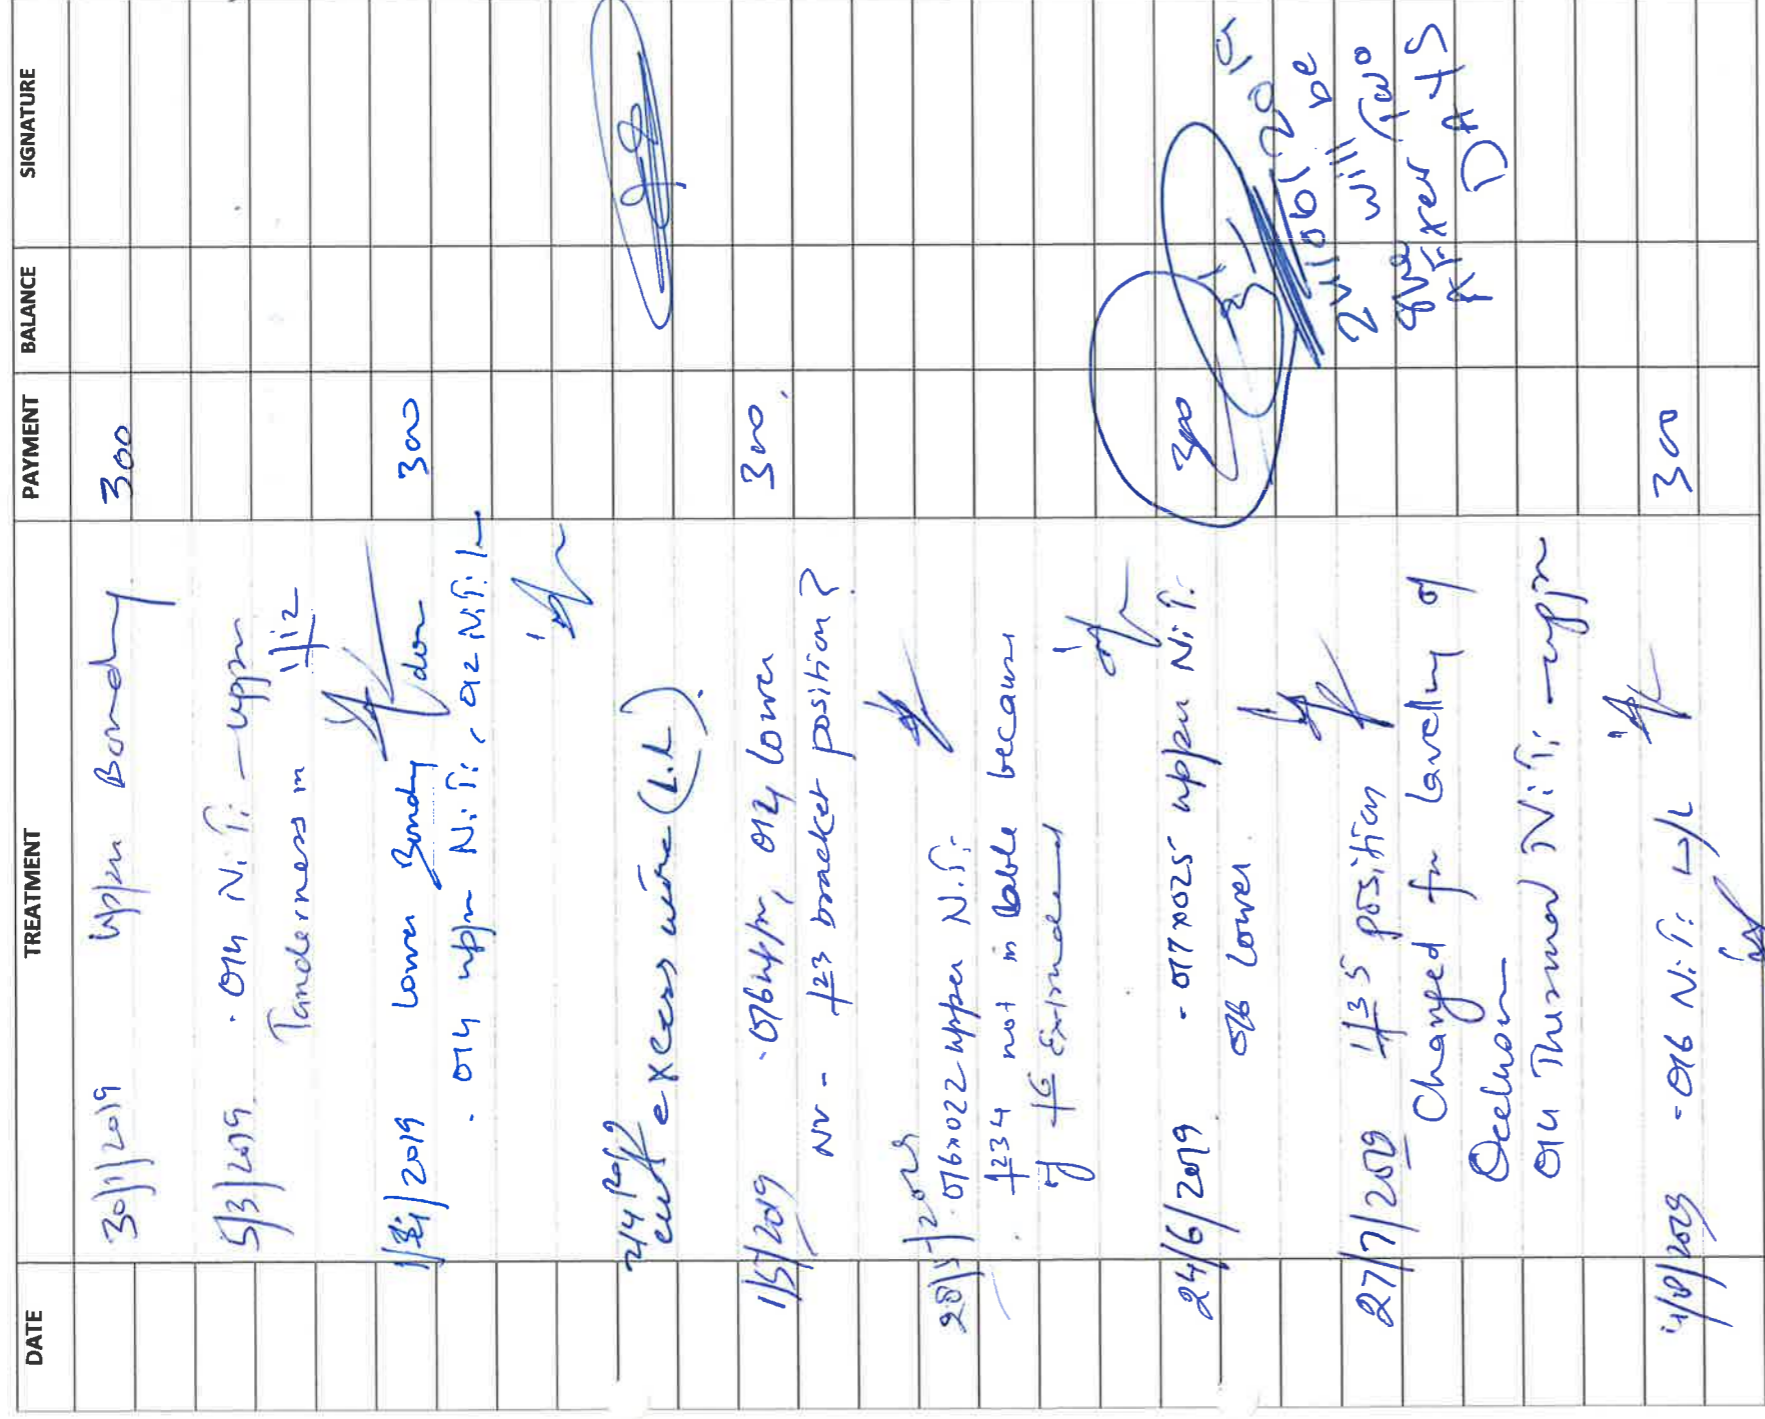 DATE TREATMENT PAYMENT BALANCE SIGNATURE
30/1/2019 upper Bonding 300
5/3/2019 . 014 N.Ti. - upper
Tenderness in 1/12
2019 Lower Bonding done 300
. 014 upper N.Ti. , 012 N.Ti. L
2/4/2019
cut excess wire (L.L).
1/5/2019 . 016 upper, 014 lower 300.
NV - 123 bracket position?
28/5/2019
. 016x022 upper N.Ti.
. 1234 not in table because
of 6 Extruded
24/6/2019 - 017x025 upper N.T. 300
016 Lower
will be
will
give Two
After DAYS
27/7/2019 135 position
Changed for Levelling of
Occlusion
014 Thermal N.T. - upper
/8/2019 - 016 N.T. L/L 300